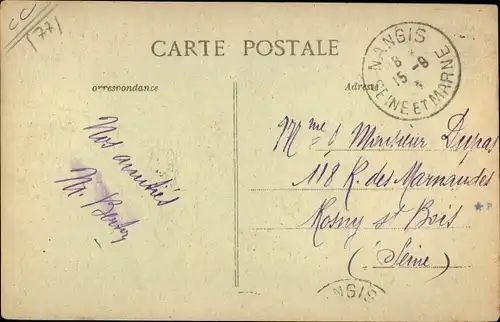 CC
(77)
CARTE POSTALE
orrespondance
Adresse
NANGIS
8
15 -8
SEINE ET MARNE
Nos amitiés
M.
Mme & Monsieur Dupas
118 R. des Marnaudes
Rosny s/s Bois
(Seine)
NGIS